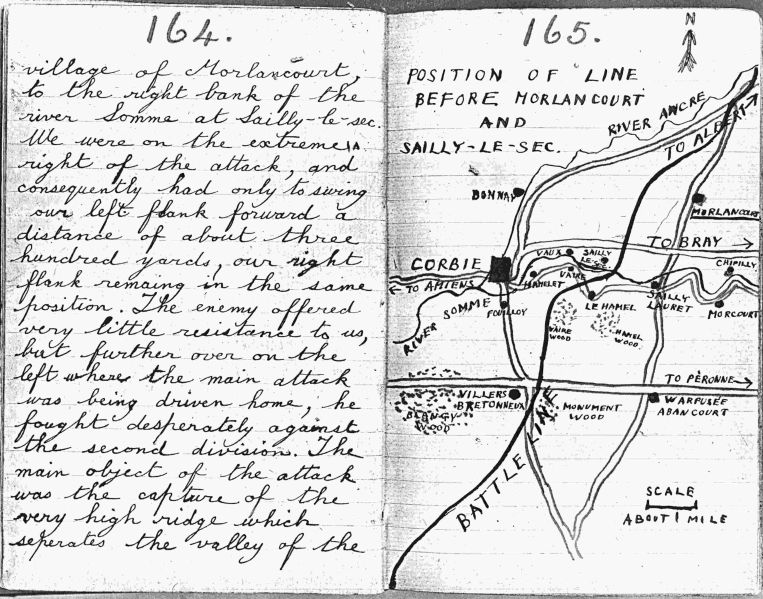 164.
village of Morlancourt,
to the right bank of the
river Somme at Sailly-le-sec.
We were on the extreme
right of the attack, and
consequently had only to swing
our left flank forward a
distance of about three
hundred yards, our right
flank remaing in the same
position. The enemy offered
very little resistance to us,
but further over on the
left where the main attack
was being driven home, he
fought desperately against
the second division. The
main object of the attack
was the capture of the
very high ridge which
seperates the valley of the
165.
N
POSITION OF LINE
BEFORE MORLANCOURT
AND
SAILLY-LE-SEC.
RIVER ANCRE
TO ALBERT
BONNAY
MORLANCOURT
TO BRAY
CORBIE
VAUX
SAILLY
LE-SEC
CHIPILLY
TO AMIENS
HAMELET
VAIRE
SOMME
FOUILLOY
LE HAMEL
SAILLY
LAURET
MORCOURT
RIVER
VAIRE
WOOD
HAMEL
WOOD
TO PÈRONNE
VILLERS
BRETONNEUX
BLANGY
WOOD
MONUMENT
WOOD
WARFUSÉE
ABANCOURT
BATTLE LINE
SCALE
ABOUT 1 MILE